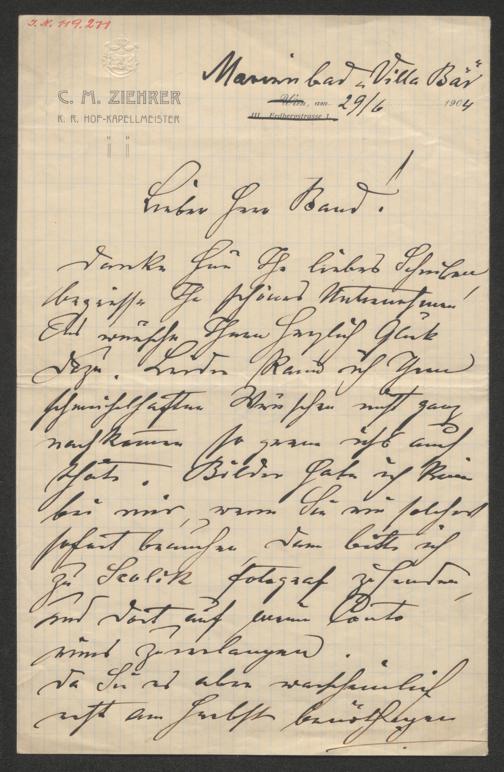 I.N. 119.271
Marienbad "Villa Bär"
C. M. ZIEHRER
K. K. HOF-KAPELLMEISTER
Wien, am 29/6 1904
III., Erdbergstrasse 1.
Lieber Herr Band!
Danke für Ihr liebes Schreiben,
begrüsse Ihr schönes Unternehmen
und wünsche Ihnen herzlich Glück
dazu. Leider kann ich Ihrem
schmeichelhaften Wünschen nicht ganz
nachkommen so gerne ichs auch
thäte. Bilder habe ich keine
bei mir, wenn Sie ein solches
sofort brauchen, dann bitte ich
zu Scolik Fotograf zu senden,
und dort auf meine Conto
eines zu verlangen.
Da Sie es aber wahrscheinlich
erst am Herbst benöthigen